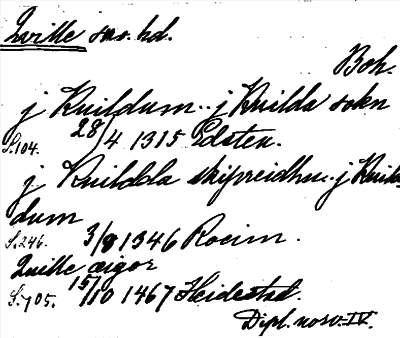 Qville sns. hd.
Boh.
j Knildum.. j Knilda sokn
S.104. 28/4 1315 Edsten.
j Knildda skipreidhu.. j Knild-
dum
S.246. 3/8 1346 Roeim.
Quille æigor
S.705. 15/10 1467 Heidestad.
Dipl. norv. IV.